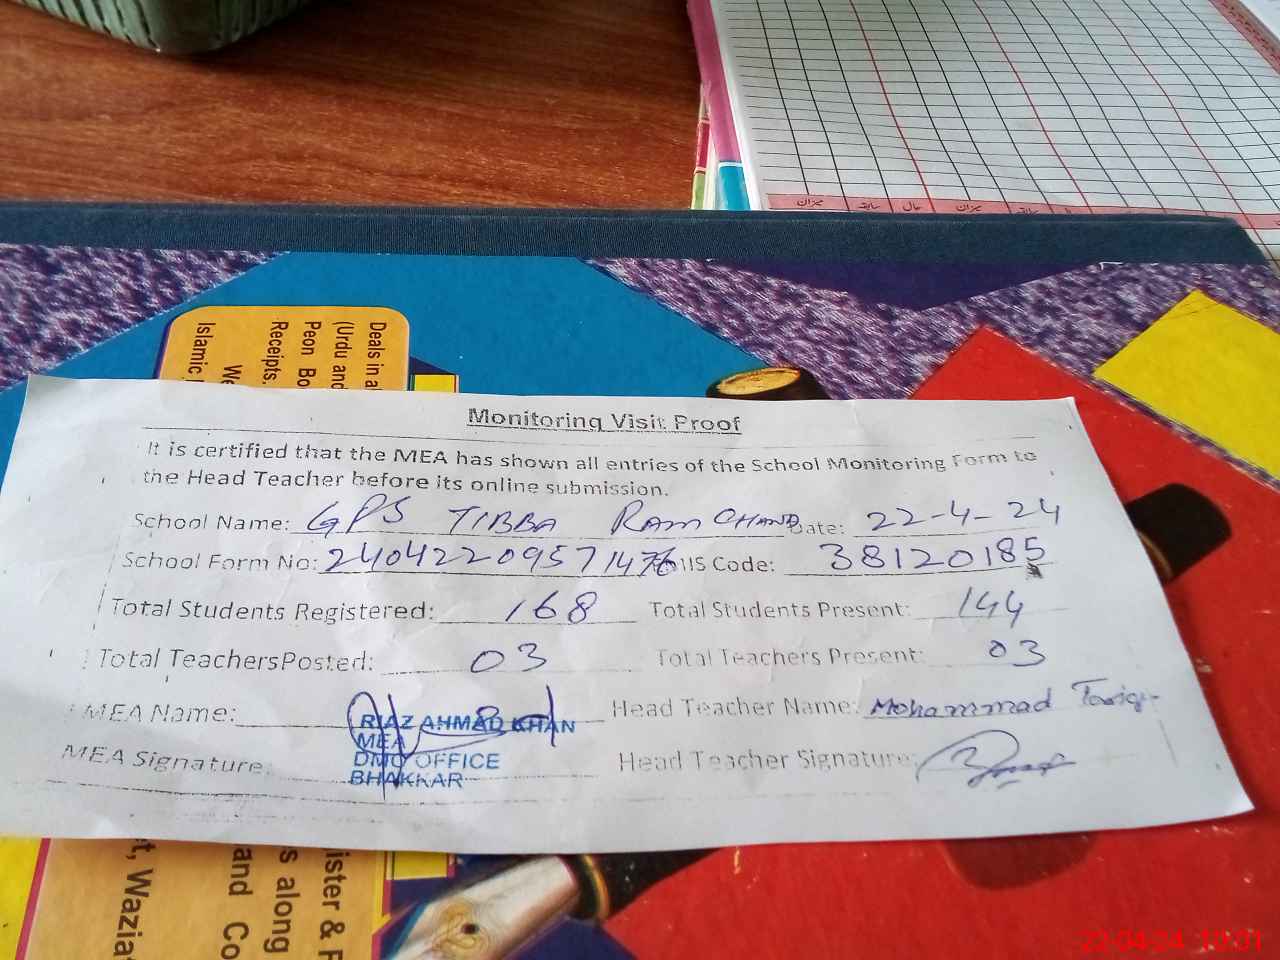 میزان سابقہ حال میزان سابقہ
Deals in a
(Urdu and
Peon Bo
Receipts.
We
Islamic
Monitoring Visit Proof
It is certified that the MEA has shown all entries of the School Monitoring Form to
the Head Teacher before its online submission.
School Name: GPS TIBBA RAM CHAND Date: 22-4-24
School Form No: 24042209571476 IIS Code: 38120185
Total Students Registered: 168 Total Students Present: 144
Total TeachersPosted: 03 Total Teachers Present: 03
MEA Name: Head Teacher Name: Mohammad Tariq
RIAZ AHMAD KHAN
MEA
MEA Signature: Head Teacher Signature:
DMO OFFICE
BHAKKAR
ister & F
s along
and Co
t, Wazia
22-04-24 10:31